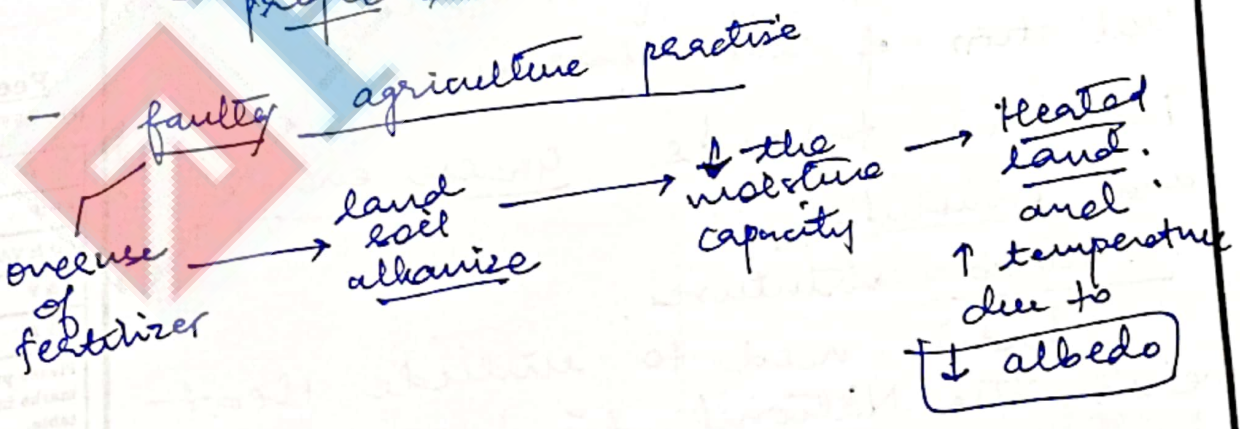 - faulty agriculture practise
overuse
of
fertilizer
→ land
soil
alkanize
→ ↓ the
moisture
capacity
→ Heated
land.
and
↑ temperature
due to
↓ albedo